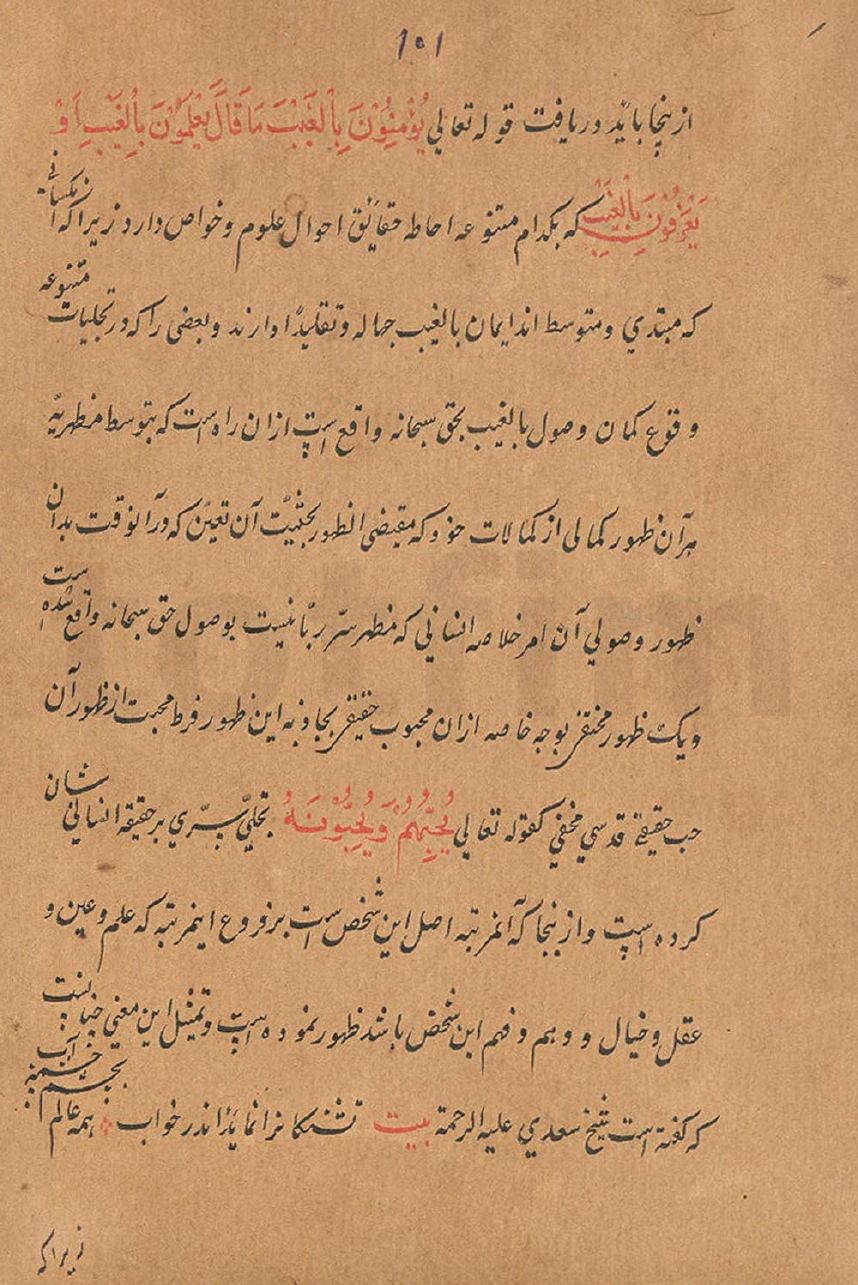 ۱۰۱
از ینجا باید دریافت قوله تعالی یُؤْمِنُوْنَ بِالْغَیْبَ مَا قَالَ یَعْلَمُوْنَ بِالْغَیْبِ اَوْ
یَعْرِفُوْنَ بِالْغَیْبِ که بکدام متنوعه احاطه حقایق احوال علوم و خواص دارد زیرا که از نکسانی
که مبتدی و متوسط اند ایمان بالغیب جهاله و تقلیدًا دارند و بعضی را که در تجلیات متنوعه
وقوع کمان وصول بالغیب بحق سبحانه واقع است ازان راه است که بتوسط مظهریه
هر آن ظهور کمالی از کمالات خود که مقتضی الظهور بحثیّت آن تعیّن که در آنوقت بدان
ظهور وصولی آن امر خلاصه انسانی که مظهر سرّ ربانیست بوصول حق سبحانه واقع شده است
و یک ظهور مختفی بوجه خاصه ازان محبوب حقیقی بجاذبه این ظهور فرط محبت از ظهور آن
حب حقیقی قدسی مخفی کقوله تعالی یُحِبُّهُمْ وَیُحِبُّوْنَهُ بتجلیّ سرّی بر حقیقة انسانی شان
کرده است و از ینجا که آنمرتبه اصل این شخص است بر فروع اینمرتبه که علم و عین و
عقل و خیال و وهم و فهم این شخص باشد ظهور نموده است و تمثیل این معنی چنانست
که گفته است شیخ سعدی علیه الرحمة بیت تشنکانرا نماید اندر خواب همه عالم بچشم چشمه آب
زیرا که